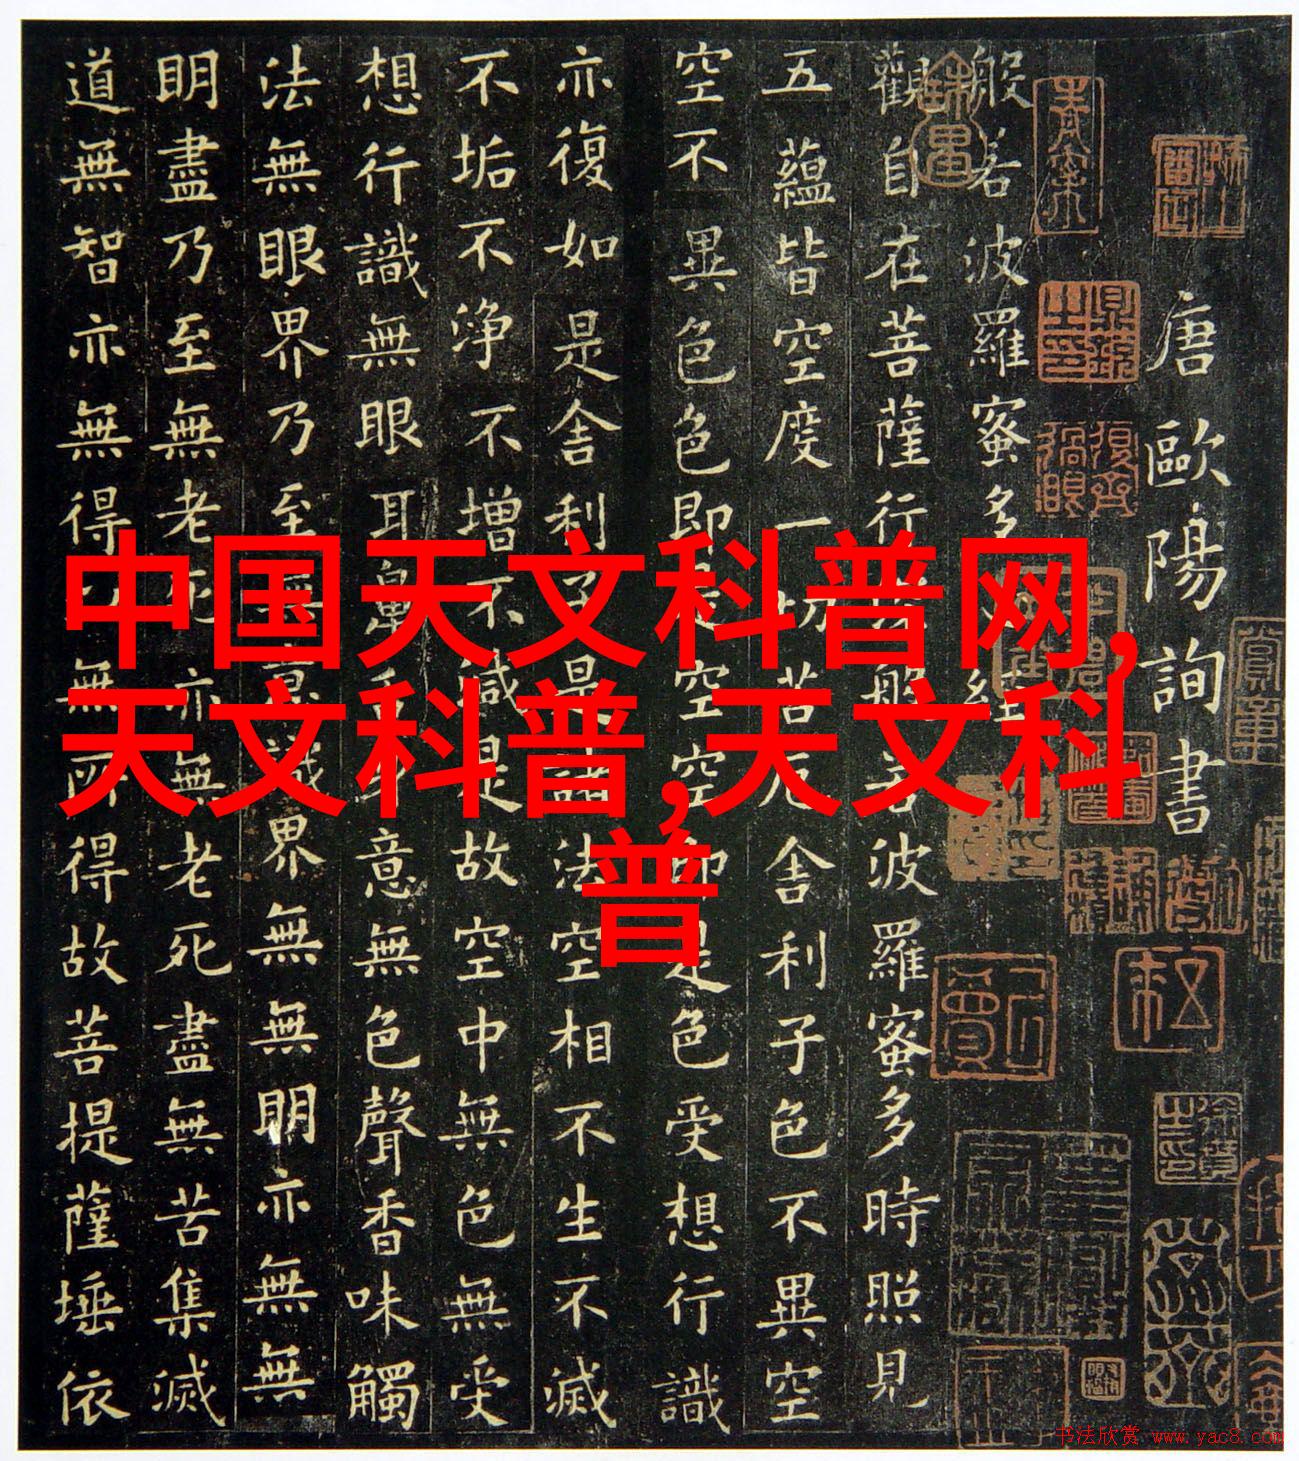 中国天文科普网,
天文科普,天文科
普
唐歐陽詢書
般若波羅蜜多心經
觀自在菩薩行深般若波羅蜜多時照見
五蘊皆空度一切苦厄舍利子色不異空
空不異色色即是空空即是色受想行識
亦復如是舍利子是諸法空相不生不滅
不垢不淨不增不減是故空中無色無受
想行識無眼耳鼻舌身意無色聲香味觸
法無眼界乃至無意識界無無明亦無無
明盡乃至無老死亦無老死盡無苦集滅
道無智亦無得以無所得故菩提薩埵依
书法欣赏 www.yac8.com